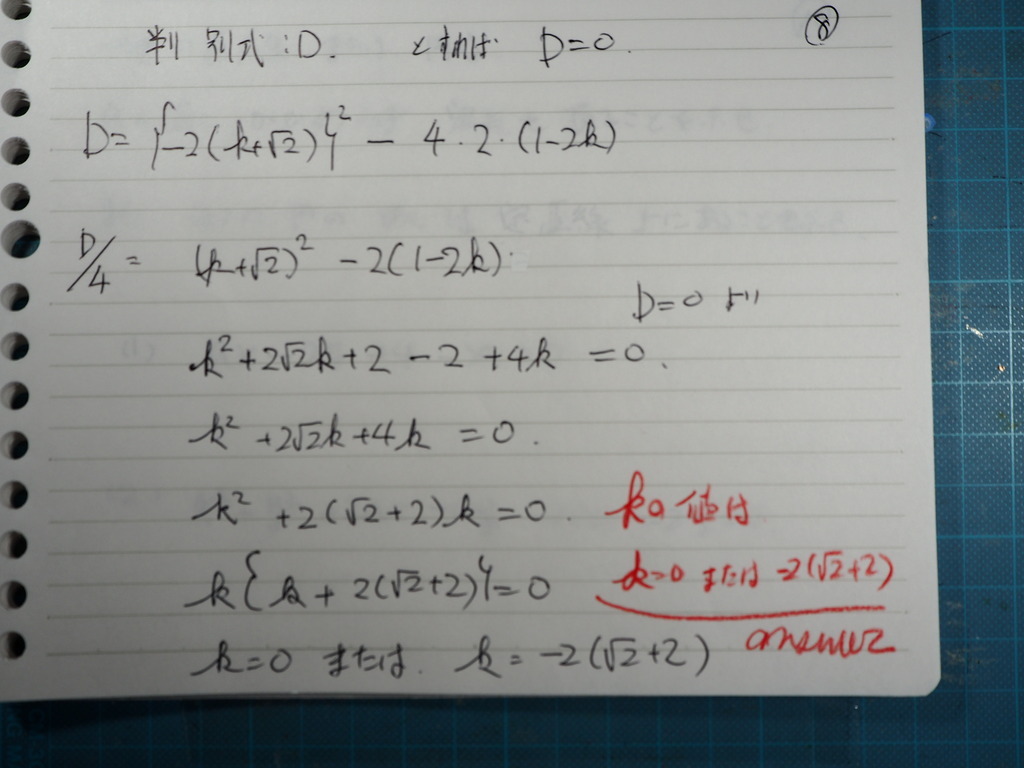 ⑧
判別式:D. とすれば D=0.
D= {-2(k+√2)}² - 4・2・(1-2k)
D/4 = (k+√2)² -2(1-2k).
D=0 より
k²+2√2k+2 -2 +4k =0.
k² +2√2k+4k =0.
k² +2(√2+2)k =0.
kの値は
k{k+2(√2+2)}=0
k=0 または -2(√2+2)
answer
k=0 または. k=-2(√2+2)